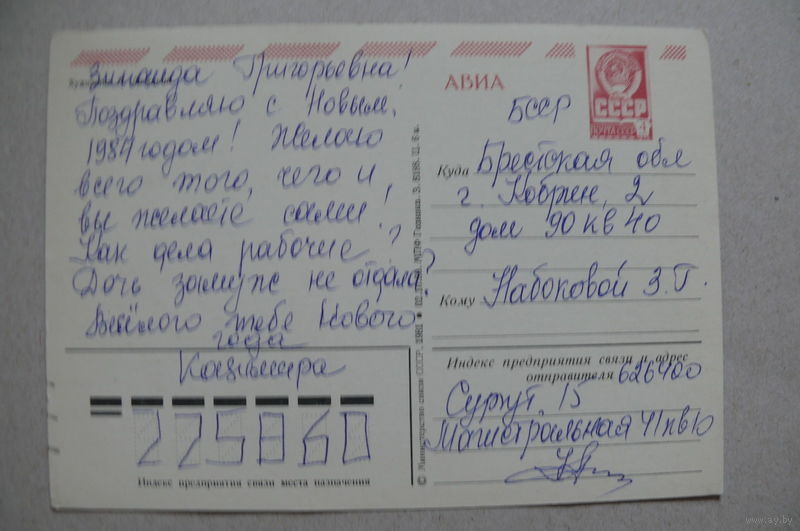 Зинаида Григорьевна!
Поздравляю с Новым,
1984 годом! Желаю
всего того, чего и,
вы желаете сами!
Как дела рабочие?
Дочь замуж не отдала?
Весёлого тебе Нового
года
Кацымира
225860
Индекс предприятия связи места назначения
© Министерство связи СССР. 1981
АВИА
СССР
ПОЧТА СССР
БССР
Куда Брестская обл
г. Кобрин, 2
дом 90 кв 40
Кому Набоковой З.Г.
Индекс предприятия связи и адрес
отправителя 626400
Сургут, 15
Магистральная 41 кв 10
www.ay.by